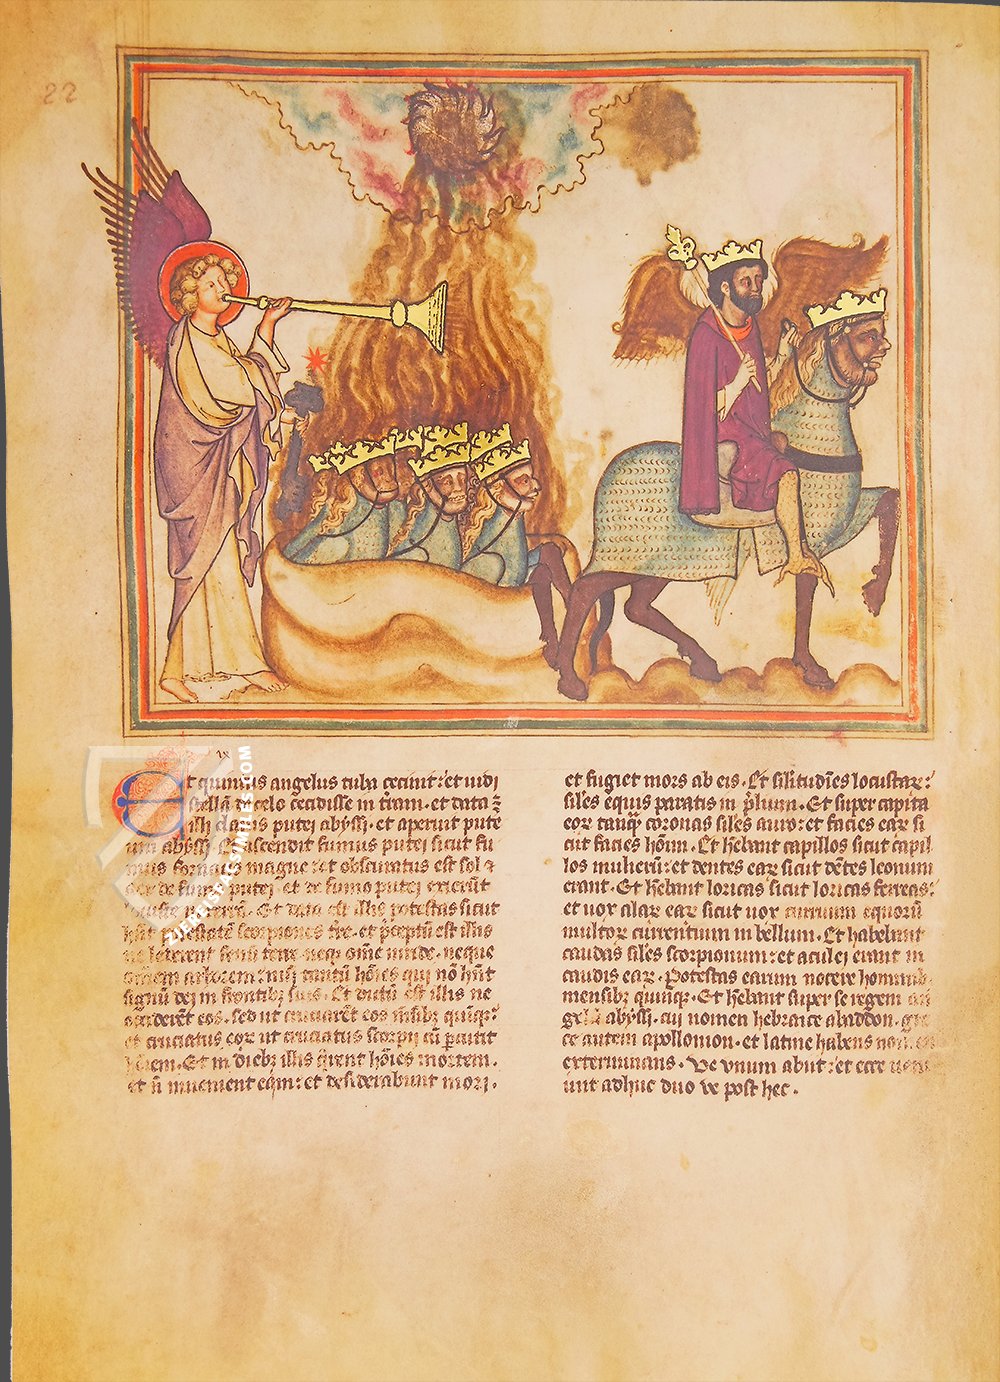 22
ix
Et quintus angelus tuba cecinit: et uidi
stellā de celo cecidisse in tr̄am. et data ē
illi clauis putei abyssi. et aperuit pute
um abyssi. Et ascendit fumus putei sicut fu
mus fornacis magne: et obscuratus est sol ⁊
aer de fumo putei. et de fumo putei exierūt
locuste in terrā. Et data est illis potestas sicut
hn̄t potestatē scorpiones tr̄e. et p̄ceptū est illis
ne lederent fenū terre. neqꝫ om̄e uiride. neque
om̄em arborem: nisi tantū hoīes qui nō hn̄t
signū dei in frontibꝫ suis. Et datū est illis ne
occiderēt eos. sed ut cruciarēt eos m̄sibꝫ quinqꝫ:
et cruciatus eoꝝ ut cruciatus scorpii cū p̄cutit
hoīem. Et in diebꝫ illis q̄rent hoīes mortem.
et ñ inuenient eam: et desiderabunt mori.
et fugiet mors ab eis. Et silitudīes locustaꝝ:
sīles equis paratis in p̄lium. Et super capita
eoꝝ tanqꝫ coronas sīles auro: et facies eaꝝ si
cut facies hoīm. Et hēbant capillos sicut capil
los mulierū: et dentes eaꝝ sicut dētes leonum
erant. Et hēbant loricas sicut loricas ferreas:
et uox alaꝝ eaꝝ sicut uox curruum equorū
multoꝝ currentium in bellum. Et habebant
caudas sīles scorpionum: et aculei erant in
caudis eaꝝ. Potestas earum nocere hominibꝫ
mensibꝫ quinqꝫ. Et hēbant super se regem an
gelū abyssi. cui nomen hebraice abaddon. gre
ce autem apollionon. et latine habens nomen
exterminans. Ve unum abiit: et ecce ueni
unt adhuc duo ve post hec.
ZIEREIS FACSIMILES.COM